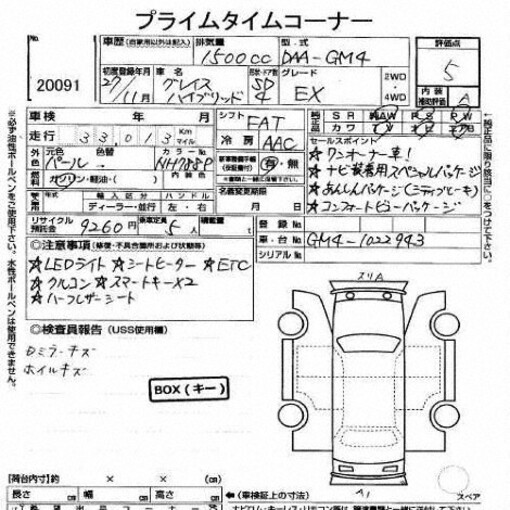 プライムタイムコーナー
20091
車歴 (自家用以外は記入)
排気量 1500cc
型式 DAA-GM4
評価点 5
初度登録年月 27/11月
車名 グレイス ハイブリッド
形状・ドア数 SD 4
グレード EX
2WD・4WD
内装補助評価 A
車検 年 月
シフト FAT
純正 S R AW P S P W
カワ
走行 33,013 Km マイル
冷房 AAC
セールスポイント
★ワンオーナー車!
★ナビ装着用スペシャルパッケージ
★あんしんパッケージ(シティブレーキ)
★コンフォートビューパッケージ
外色 元色 色替
パール
NH788P
内装色
有・無
燃料 ガソリン・軽油・( )
名義変更期限
月 日
輸入区分 ハンドル
ディーラー・並行 左・右
リサイクル預託金 9260 円
乗車定員 5 人
積載量 t
登録No.
車台No. GM4-1022943
シリアルNo.
◎注意事項 (修復・不具合箇所および状態等)
★LEDライト ★シートヒーター ★ETC
★クルコン ★スマートキー×2
★ハーフレザーシート
◎検査員報告 (USS使用欄)
Dミラーキズ
ホイルキズ
BOX(キー)
スリA
A1
スペア
【荷台内寸】約 × × (cm)
長さ cm 幅 cm 高さ cm
←(車検証上の寸法)
※必ず油性ボールペンをご使用下さい。水性ボールペンは使用できません。